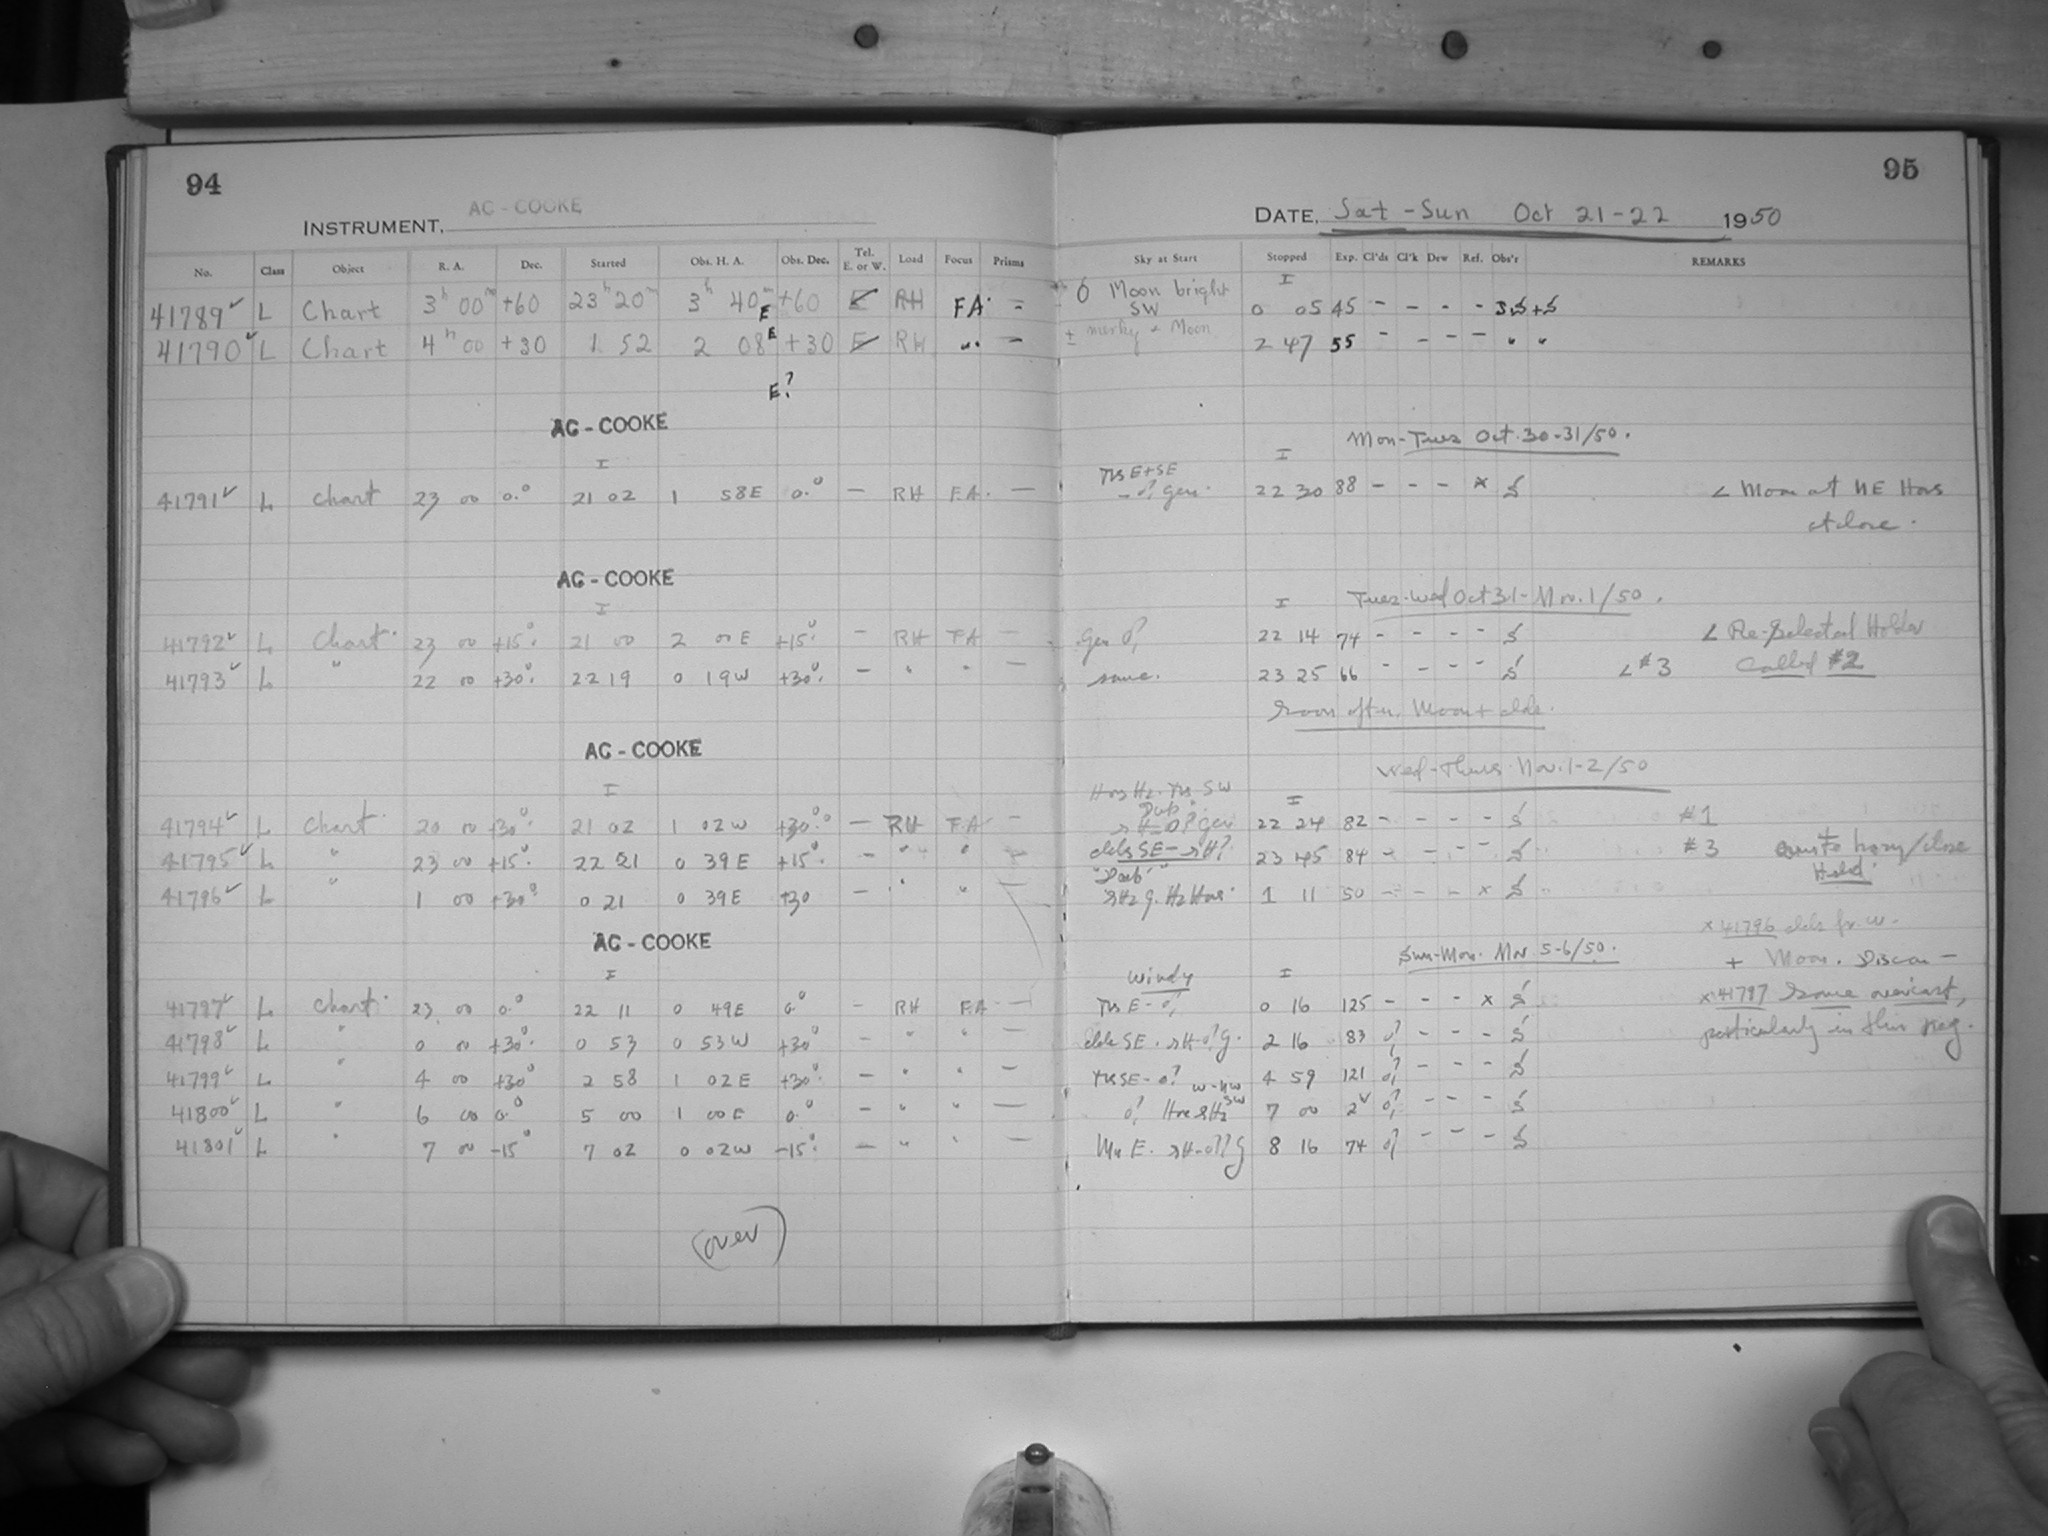 94
INSTRUMENT, AC - COOKE
No. Class Object R. A. Dec. Started Obs. H. A. Obs. Dec. Tel. E. or W. Load Focus Prisms
41789✓ L Chart 3h 00m +60 23h 20m 3h 40m E +60 E RH FA. -
41790✓ L Chart 4h 00 +30 1 52 2 08E +30 E RH " -
E?
AC - COOKE
I
41791✓ L Chart 23 00 0.° 21 02 1 58E 0.° - RH F.A. -
AC - COOKE
I
41792✓ L Chart 23 00 +15° 21 00 2 00E +15° - RH FA -
41793✓ L " 22 00 +30° 22 19 0 19W +30° - " " -
AC - COOKE
I
41794✓ L Chart 20 00 +30° 21 02 1 02W +30° - RH FA -
41795✓ L " 23 00 +15° 22 21 0 39E +15° - " "
41796✓ L " 1 00 +30° 0 21 0 39E +30 - " " -
AC - COOKE
I
41797✓ L Chart 23 00 0° 22 11 0 49E 0° - RH F.A -
41798✓ L " 0 00 +30° 0 53 0 53W +30° - " " -
41799✓ L " 4 00 +30° 2 58 1 02E +30° - " " -
41800✓ L " 6 00 0.° 5 00 1 00E 0.° - " " -
41801✓ L " 7 00 -15° 7 02 0 02W -15° - " " -
(over)
95
DATE, Sat - Sun Oct 21-22 1950
Sky at Start Stopped Exp. Cl'ds Cl'k Dew Ref. Obs'r REMARKS
I
Moon bright
SW 0 05 45 - - - -
± Moon 2 47 55 - - - - " "
Mon-Tues Oct. 30-31/50.
I
E+SE
22 30 88 - - - x S < Moon at NE Hors
at close.
Tues-Wed Oct 31-Nov. 1/50.
I
Gen 22 14 74 - - - - S < Re-Selected Holder
same. 23 25 66 - - - - S <#3 Called #2
Soon after Moon + clds.
Wed-Thurs Nov. 1-2/50
SW
I
22 24 82 - - - - S #1
clds SE 23 45 84 - - - - S #3 hazy/close
1 11 50 - - - x S
x 41796 clds fr. W.
Sun-Mon. Nov 5-6/50. + Moon.
windy I
E 0 16 125 - - - x S x 41797 Some overcast,
clds SE. 2 16 83 - - - S particularly in this reg.
SE 4 59 121 - - - S
W-NW
SW 7 00 2✓ - - - S
E. 8 16 74 - - - S